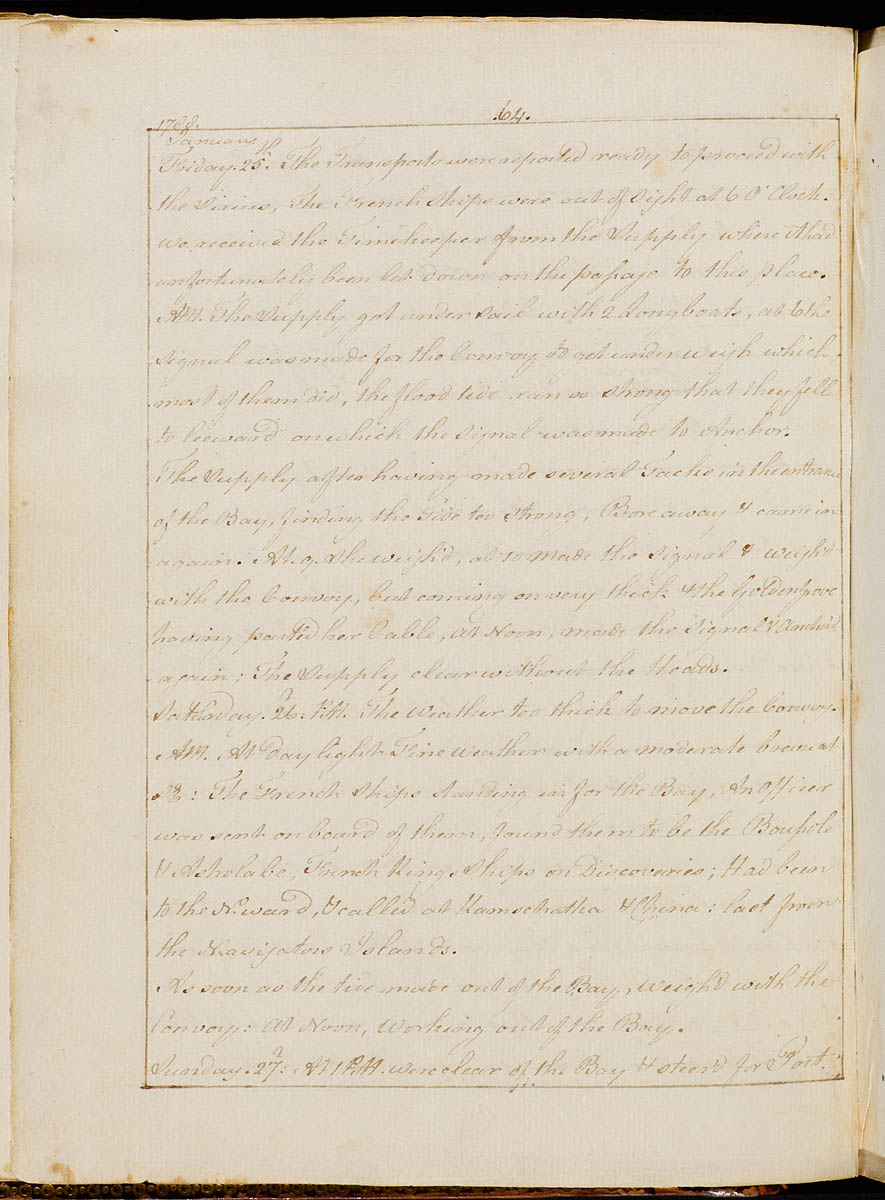 .64.
1788.
January.
Friday. 25th. The Transports were reported ready to proceed with
the Sirius, The French Ships were out of Sight at 6 O'Clock.
we received the Timekeeper from the Supply where it had
unfortunately been let down on the passage to this place.
AM. The Supply got under Sail with 2 Longboats, at 6 the
Signal was made for the Convoy to get under weigh which
most of them did, the flood tide ran so strong that they fell
to leeward on which the Signal was made to Anchor.
The Supply after having made several Tacks in the entrance
of the Bay, finding the Tide too strong, Bore away & came in
again. At. 9. She weigh'd, at 10 made the Signal & weigh'd
with the Convoy, but coming on very thick & the Golden Grove
having parted her Cable, at Noon, made the Signal & Anchor'd
again; The Supply clear without the Heads.
Saturday. 26: PM. The Weather too thick to move the Convoy.
AM. At daylight Fine Weather with a moderate breeze at
: The French Ships standing in for the Bay, An Officer
was sent on board of them, found them to be the Boussole
& Astrolabe, French Kings Ships on Discoveries; Had been
to the No. ward, & called at Kamschatka & China: last from
the Navigators Islands.
As soon as the tide made out of the Bay, weigh'd with the
Convoy: At Noon, Working out of the Bay.
Sunday. 27: At 1 PM. were clear of the Bay & steer'd for Port.